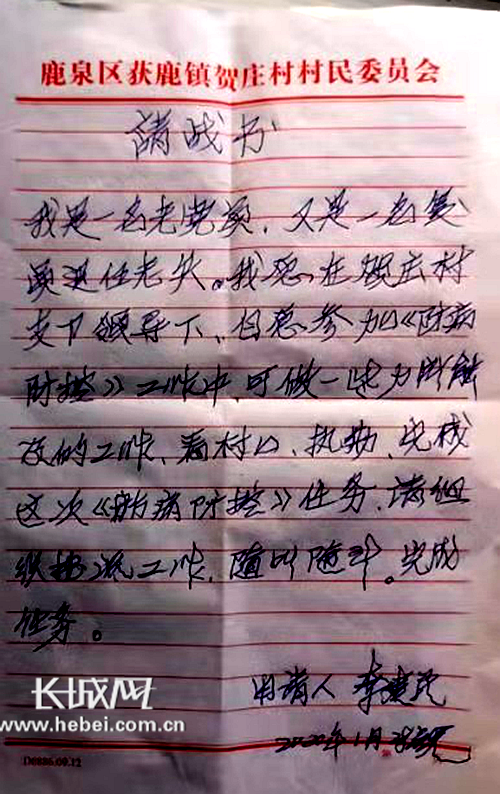 鹿泉区获鹿镇贺庄村村民委员会
请战书
我是一名老党员、又是一名复
员退伍老兵。我愿在贺庄村
支下领导下、自愿参加《防病
防控》工作中,可做一些力所能
及的工作、看村口、执勤、完成
这次《防病防控》任务、请组
织指派工作、随叫随到。完成
任务。
申请人 李
2020年1月
长城网
www.hebei.com.cn
D6886.09.12